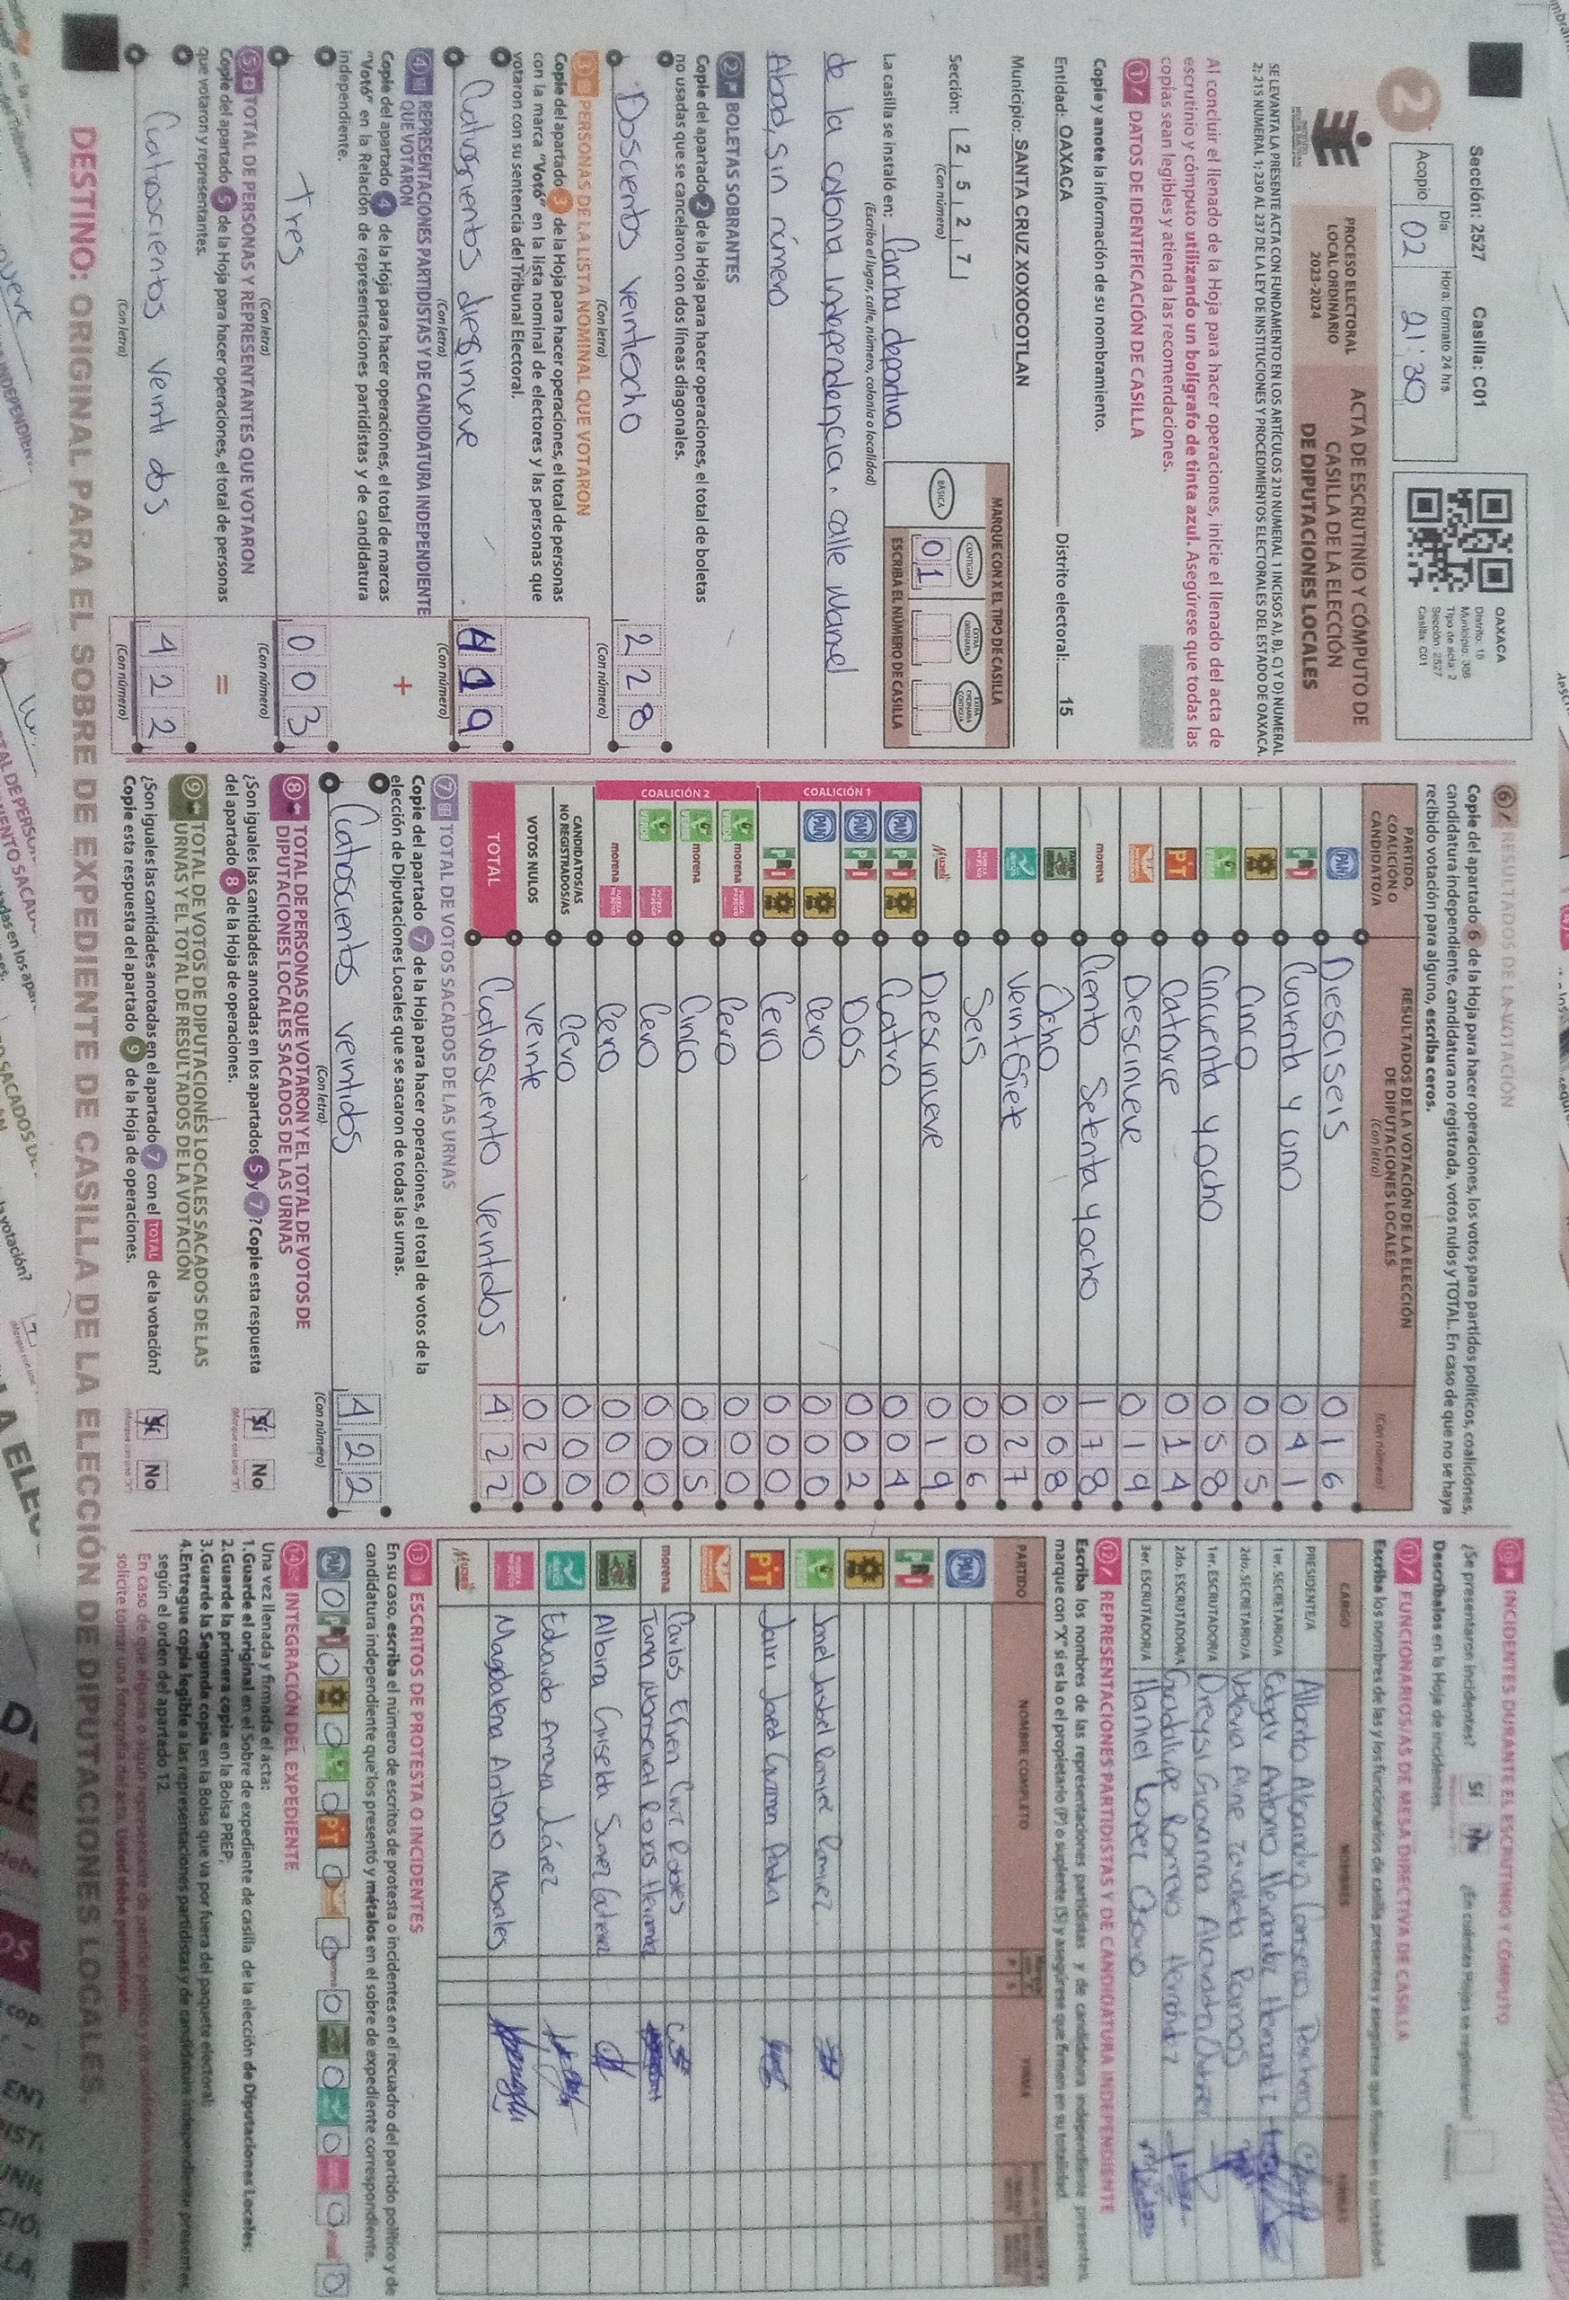 Sección: 2527 Casilla: C01
2
Día Hora: formato 24 hrs.
Acopio 02 21:30
OAXACA
Distrito: 15
Municipio: 386
Tipo de acta: 2
Sección: 2527
Casilla: C01
PROCESO ELECTORAL
LOCAL ORDINARIO
2023-2024
ACTA DE ESCRUTINIO Y CÓMPUTO DE
CASILLA DE LA ELECCIÓN
DE DIPUTACIONES LOCALES
SE LEVANTA LA PRESENTE ACTA CON FUNDAMENTO EN LOS ARTÍCULOS 210 NUMERAL 1 INCISOS A), B), C) Y D) NUMERAL
2; 215 NUMERAL 1; 230 AL 237 DE LA LEY DE INSTITUCIONES Y PROCEDIMIENTOS ELECTORALES DEL ESTADO DE OAXACA.
Al concluir el llenado de la Hoja para hacer operaciones, inicie el llenado del acta de
escrutinio y cómputo utilizando un bolígrafo de tinta azul. Asegúrese que todas las
copias sean legibles y atienda las recomendaciones.
1 DATOS DE IDENTIFICACIÓN DE CASILLA
Copie y anote la información de su nombramiento.
Entidad: OAXACA Distrito electoral: 15
Municipio: SANTA CRUZ XOXOCOTLAN
Sección: 2 5 2 7
(Con número)
MARQUE CON X EL TIPO DE CASILLA
BÁSICA CONTIGUA EXTRAORDINARIA EXTRAORDINARIA CONTIGUA
0 1
ESCRIBA EL NÚMERO DE CASILLA
La casilla se instaló en: Cancha deportiva
(Escriba el lugar, calle, número, colonia o localidad)
de la colonia Independencia, calle Manuel
Abad, sin número
2 BOLETAS SOBRANTES
Copie del apartado 2 de la Hoja para hacer operaciones, el total de boletas
no usadas que se cancelaron con dos líneas diagonales.
Doscientos veintiocho 2 2 8
(Con letra) (Con número)
3 PERSONAS DE LA LISTA NOMINAL QUE VOTARON
Copie del apartado 3 de la Hoja para hacer operaciones, el total de personas
con la marca "Votó" en la lista nominal de electores y las personas que
votaron con su sentencia del Tribunal Electoral.
Catrosientos diesinueve 4 1 9
(Con letra) (Con número)
4 REPRESENTACIONES PARTIDISTAS Y DE CANDIDATURA INDEPENDIENTE
QUE VOTARON
Copie del apartado 4 de la Hoja para hacer operaciones, el total de marcas
"Votó" en la Relación de representaciones partidistas y de candidatura
independiente.
+
Tres 0 0 3
(Con letra) (Con número)
5 TOTAL DE PERSONAS Y REPRESENTANTES QUE VOTARON
Copie del apartado 5 de la Hoja para hacer operaciones, el total de personas
que votaron y representantes.
=
Catroscientos veinti dos 4 2 2
(Con letra) (Con número)
6 RESULTADOS DE LA VOTACIÓN
Copie del apartado 6 de la Hoja para hacer operaciones, los votos para partidos políticos, coaliciones,
candidatura independiente, candidatura no registrada, votos nulos y TOTAL. En caso de que no se haya
recibido votación para alguno, escriba ceros.
PARTIDO, COALICIÓN O CANDIDATO/A
RESULTADOS DE LA VOTACIÓN DE LA ELECCIÓN DE DIPUTACIONES LOCALES
(Con letra) (Con número)
PAN Diesciseis 0 1 6
PRI Cuarenta y uno 0 4 1
Cinco 0 0 5
VERDE Cincuenta y ocho 0 5 8
PT Catorce 0 1 4
Diescinueve 0 1 9
morena Ciento setenta y ocho 1 7 8
Ocho 0 0 8
Veintisiete 0 2 7
Seis 0 0 6
Diescinueve 0 1 9
COALICIÓN 1
PAN PRI Catro 0 0 4
PAN PRI Dos 0 0 2
PAN Cero 0 0 0
PRI Cero 0 0 0
COALICIÓN 2
VERDE morena Cero 0 0 0
VERDE morena Cinco 0 0 5
VERDE Cero 0 0 0
morena Cero 0 0 0
CANDIDATOS/AS NO REGISTRADOS/AS Cero 0 0 0
VOTOS NULOS Veinte 0 2 0
TOTAL Cuatrosciento veintidos 4 2 2
7 TOTAL DE VOTOS SACADOS DE LAS URNAS
Copie del apartado 7 de la Hoja para hacer operaciones, el total de votos de la
elección de Diputaciones Locales que se sacaron de todas las urnas.
Catroscientos veintidos 4 2 2
(Con letra) (Con número)
8 TOTAL DE PERSONAS QUE VOTARON Y EL TOTAL DE VOTOS DE
DIPUTACIONES LOCALES SACADOS DE LAS URNAS
¿Son iguales las cantidades anotadas en los apartados 5 y 7? Copie esta respuesta
del apartado 8 de la Hoja de operaciones.
Sí No
9 TOTAL DE VOTOS DE DIPUTACIONES LOCALES SACADOS DE LAS
URNAS Y EL TOTAL DE RESULTADOS DE LA VOTACIÓN
¿Son iguales las cantidades anotadas en el apartado 7 con el TOTAL de la votación?
Copie esta respuesta del apartado 9 de la Hoja de operaciones.
Sí No
10 INCIDENTES DURANTE EL ESCRUTINIO Y CÓMPUTO
¿Se presentaron incidentes? Sí No ¿En cuántas Hojas se registraron?
Descríbalos en la Hoja de incidentes.
11 FUNCIONARIOS/AS DE MESA DIRECTIVA DE CASILLA
Escriba los nombres de las y los funcionarios de casilla presentes y asegúrese que firmen en su totalidad.
CARGO NOMBRES FIRMAS
PRESIDENTE/A Alberto Alejandro
1er. SECRETARIO/A Antonio Hernandez Hernandez
2do. SECRETARIO/A Valeria Aline Ramos
1er. ESCRUTADOR/A Dreysi Giovanna
2do. ESCRUTADOR/A Guadalupe Romero Hernández
3er. ESCRUTADOR/A Haniel Lopez Osorio
12 REPRESENTACIONES PARTIDISTAS Y DE CANDIDATURA INDEPENDIENTE
Escriba los nombres de las representaciones partidistas y de candidatura independiente presentes,
marque con "X" si es la o el propietario (P) o suplente (S) y asegúrese que firmen en su totalidad.
PARTIDO NOMBRE COMPLETO FIRMA
PAN
PRI
VERDE Janel Isabel Ramirez Ramirez
PT Jairi Jared Guzman
morena Carlos Efren Cruz Robles
Tania Monserrat Rojas Hernandez
Albina Griselda Sunez Gutierrez
Eduardo Amaya Járez
Magdalena Antonio Morales
13 ESCRITOS DE PROTESTA O INCIDENTES
En su caso, escriba el número de escritos de protesta o incidentes en el recuadro del partido político y de
candidatura independiente que los presentó y métalos en el sobre de expediente correspondiente.
PAN 0 PRI 0 0 0 PT 0 0 0 0 0 0 0
14 INTEGRACIÓN DEL EXPEDIENTE
Una vez llenada y firmada el acta:
1.Guarde el original en el Sobre de expediente de casilla de la elección de Diputaciones Locales;
2.Guarde la primera copia en la Bolsa PREP;
3.Guarde la Segunda copia en la Bolsa que va por fuera del paquete electoral;
4.Entregue copia legible a las representaciones partidistas y de candidatura independiente presentes,
según el orden del apartado 12.
En caso de que alguna o algún representante de partido político y de candidatura independiente
solicite tomar una fotografía del acta, Usted debe permitírselo.
DESTINO: ORIGINAL PARA EL SOBRE DE EXPEDIENTE DE CASILLA DE LA ELECCIÓN DE DIPUTACIONES LOCALES.